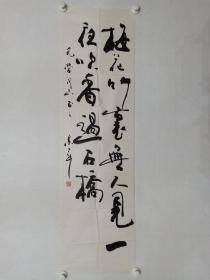 梅花竹裏無人見一
夜吹香過石橋